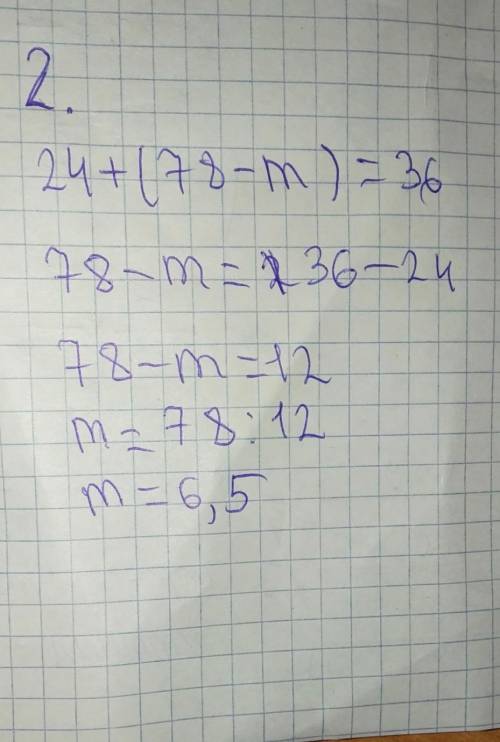 2.
24+(78-m)=36
78-m=36-24
78-m=12
m=78:12
m=6,5